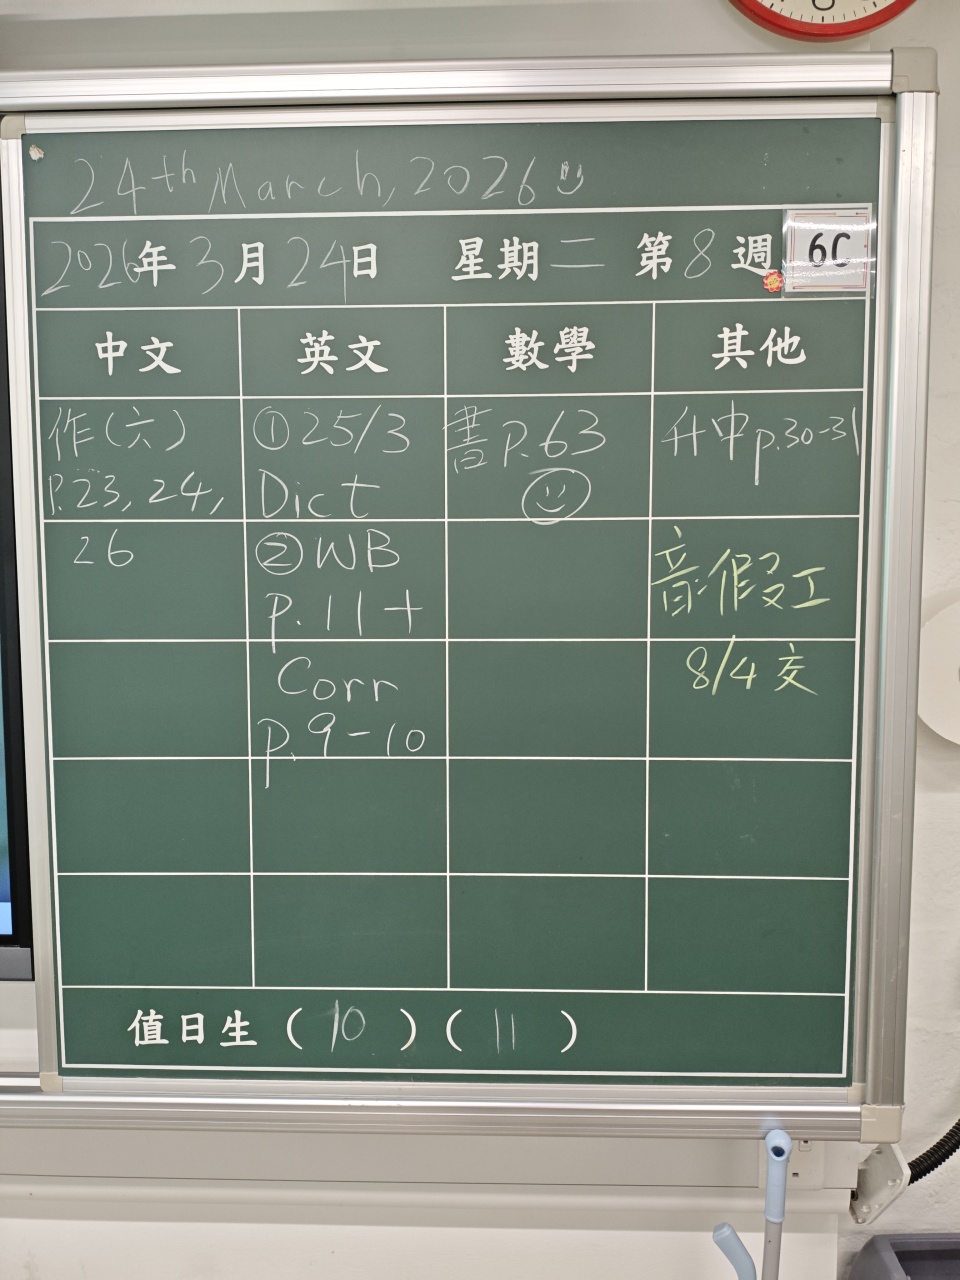 24th March, 2026
2026年3月24日 星期二 第8週 6C
中文 英文 數學 其他
作(六)
P.23, 24,
26
①25/3
Dict
②WB
p.11+
Corr
p.9-10
書P.63
升中p.30-31
音假工
8/4交
值日生(10)(11)